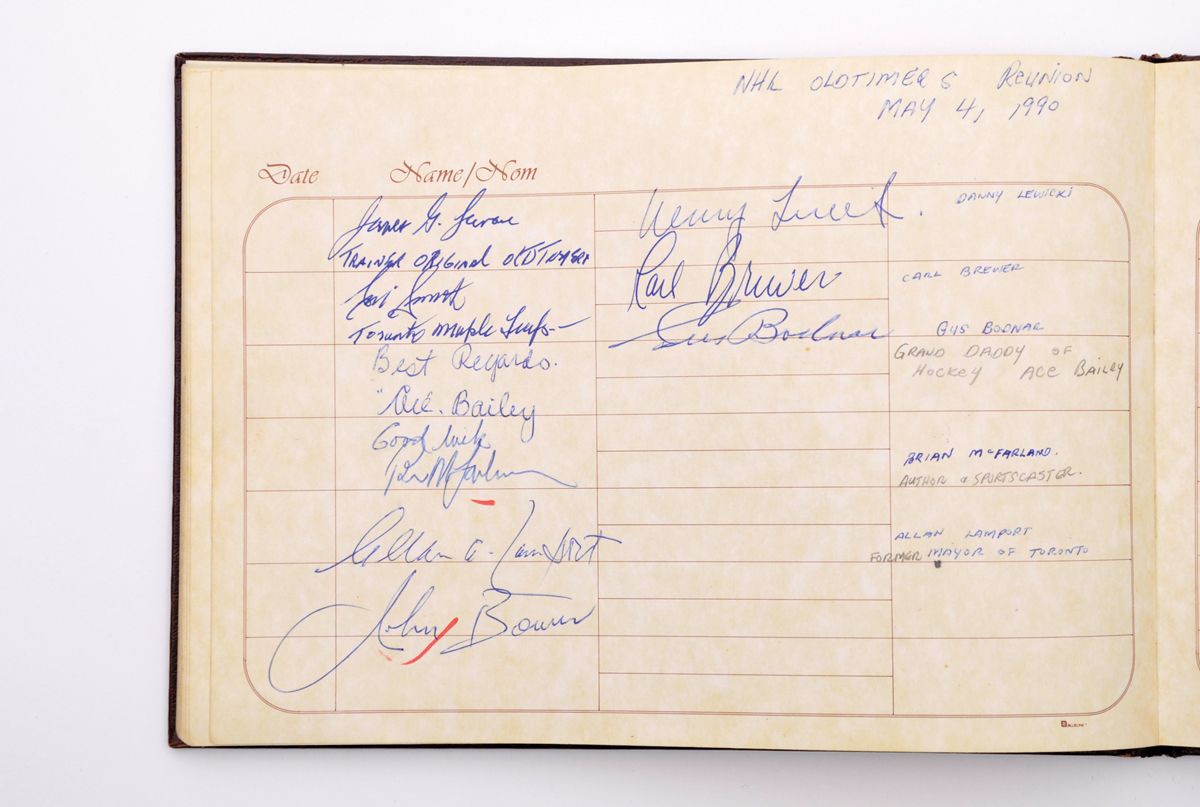 NHL OLDTIMERS REUNION
MAY 4, 1990
Date Name/Nom
James G.
TRAINER ORIGINAL OLDTIMERS
Toronto Maple Leafs
Best Regards.
"Ace. Bailey
Good luck
Allan A. Lamport
John Bower
Carl Brewer
Gus Bodnar
DANNY LEWICKI
CARL BREWER
GUS BODNAR
GRAND DADDY OF
HOCKEY ACE BAILEY
BRIAN McFARLAND.
AUTHOR & SPORTSCASTER.
ALLAN LAMPORT
FORMER MAYOR OF TORONTO